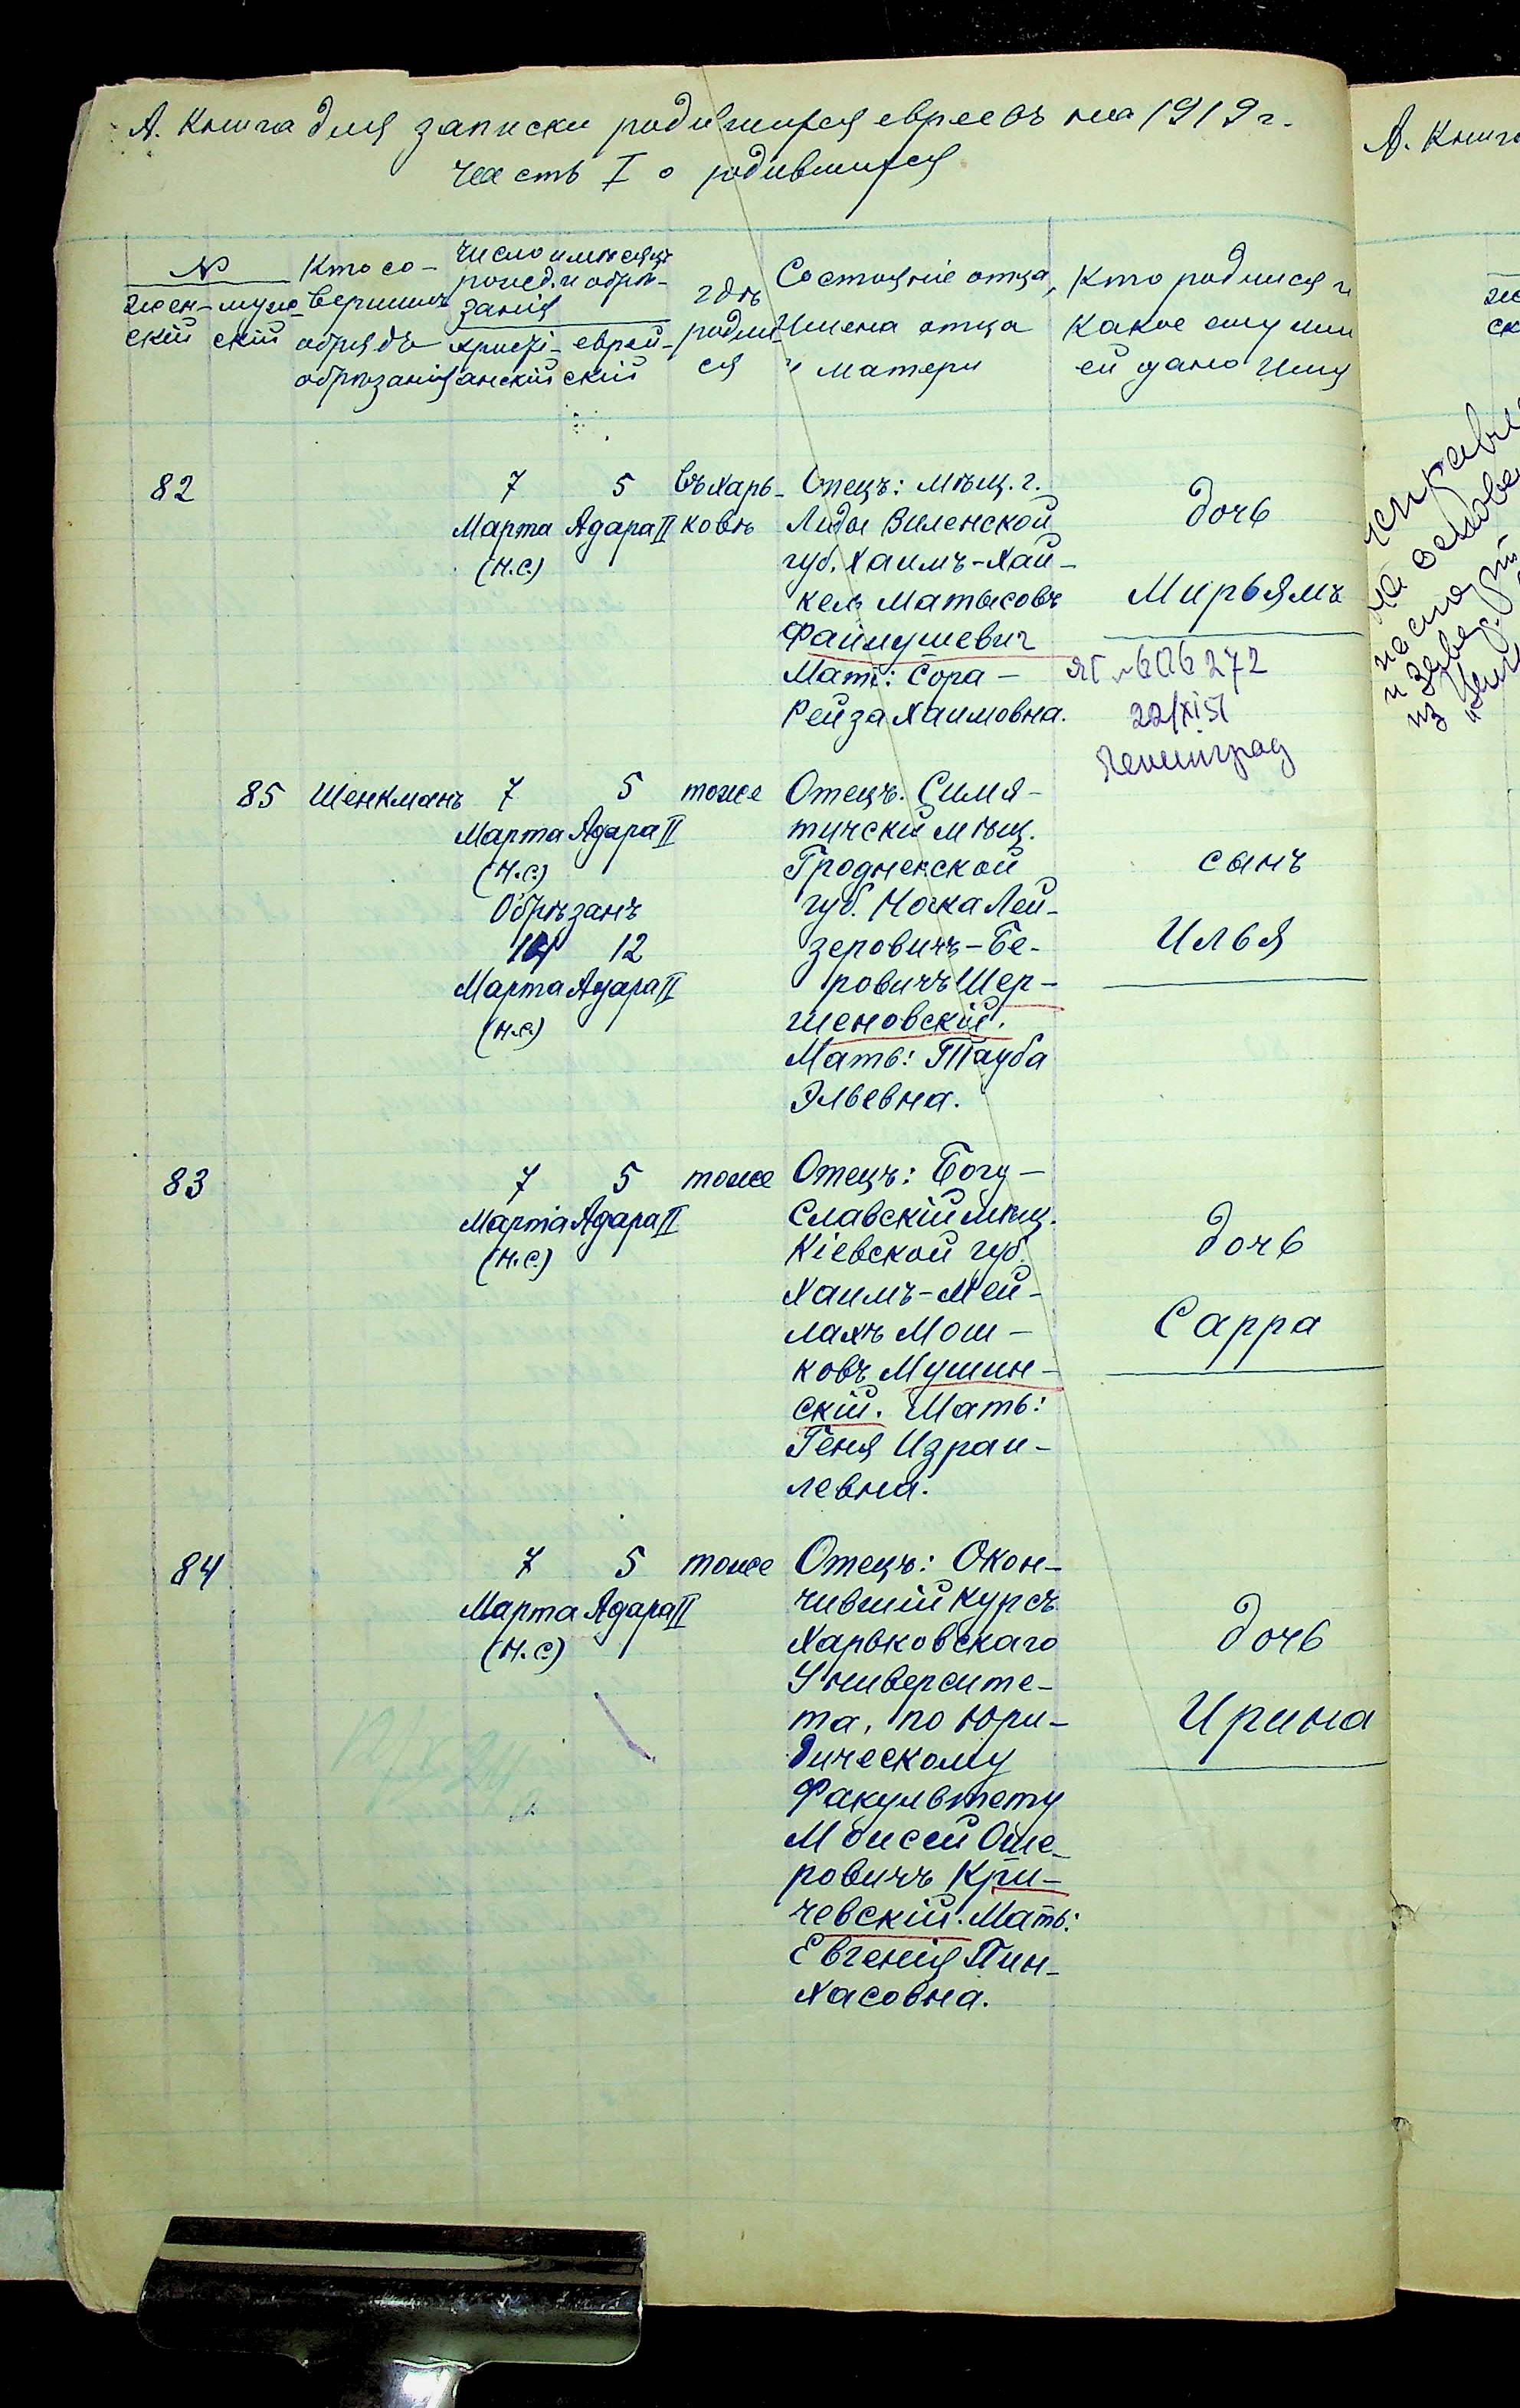 А. Книга для записки родившихся евреевъ на 1919 г.
Часть I о родившихся
№
жен-
скій
муж-
скій
Кто со-
вершилъ
обрядъ
обрѣзанія
Число и мѣсяцъ
рожд. и обрѣ-
занія
христі-
анскій
еврей-
скій
гдѣ
родил-
ся
Состояніе отца,
Имена отца
и матери
Кто родился и
какое ему или
ей дано Имя
82
7
Марта
(н.с.)
5
Адара II
въ Харь-
ковѣ
Отецъ: мѣщ. г.
Лиды Виленской
губ. Хаимъ-Хай-
кель Матысовъ
Файнушевич
Мать: Сора-
Рейза Хаимовна.
дочь
Мирьямъ
ЯГ № 606272
22/XI 51
Ленинград
85
Шенкманъ
7
Марта
(н.с.)
5
Адара II
Обрѣзанъ
14
Марта
(н.с.)
12
Адара II
тоже
Отецъ. Семя-
тичскій мѣщ.
Гродненской
губ. Носка Лей-
зеровичъ-Бе-
ровичъ Шер-
шеновскій.
Мать: Тауба
Эльевна.
сынъ
Илья
83
7
Марта
(н.с.)
5
Адара II
тоже
Отецъ: Богу-
славскій мѣщ.
Кіевской губ.
Хаимъ-Мей-
лахъ Мош-
ковъ Мушин-
скій. Мать:
Геня Израи-
левна.
дочь
Сарра
84
7
Марта
(н.с.)
5
Адара II
тоже
Отецъ: Окон-
чившій курсъ
Харьковскаго
Университе-
та, по Юри-
дическому
Факультету
Моисей Оше-
ровичъ Кри-
чевскій. Мать:
Евгенія Пин-
хасовна.
дочь
Ирина
А. Книга